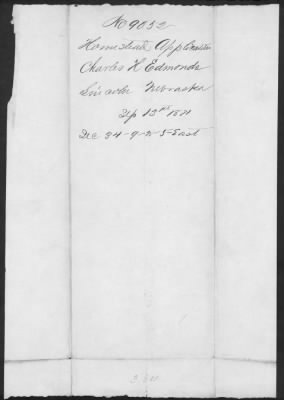 No 9052
Homestead Application
Charles H Edmonds
Lincoln Nebraska
Sep 13th 1871
Sec 34-9-N 5 East